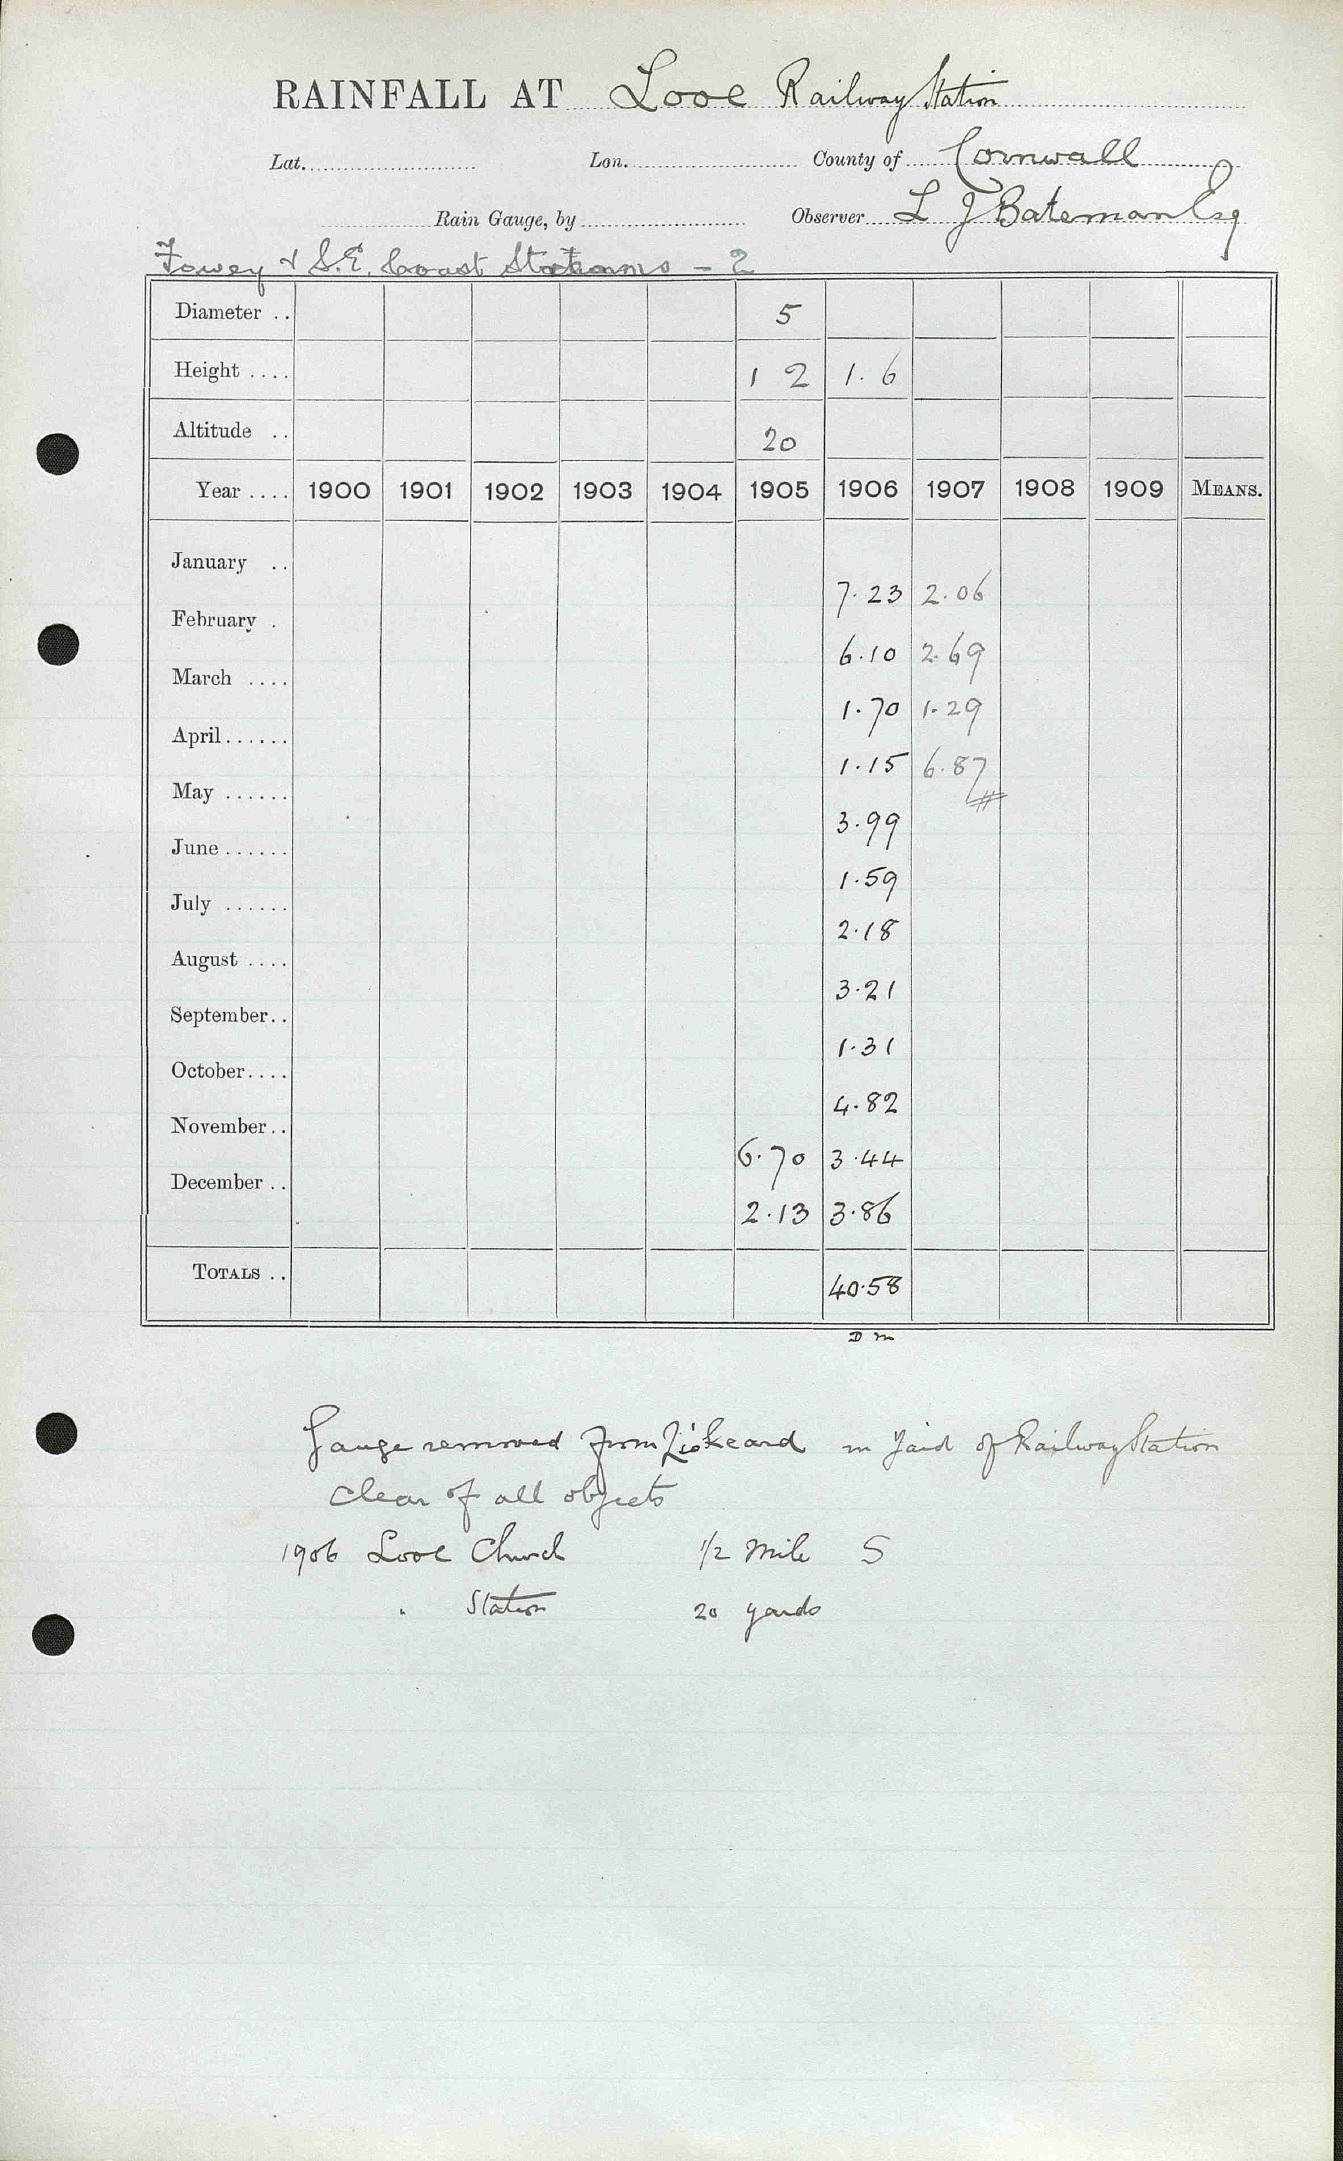 RAINFALL AT Looe Railway Station
Lat. Lon. County of Cornwall
Rain Gauge, by Observer L J Bateman Esq
Fowey & S.E. Coast Stations - 2
Diameter .. 5
Height .... 1 2 1. 6
Altitude .. 20
Year .... 1900 1901 1902 1903 1904 1905 1906 1907 1908 1909 MEANS.
January .. 7.23 2.06
February . 6.10 2.69
March .... 1.70 1.29
April...... 1.15 6.87
May ...... 3.99
June ...... 1.59
July ...... 2.18
August .... 3.21
September.. 1.31
October.... 4.82
November.. 6.70 3.44
December .. 2.13 3.86
TOTALS .. 40.58
D m
Gauge removed from Liskeard in Yard of Railway Station
clear of all objects
1906 Looe Church 1/2 Mile S
" Station 20 yards